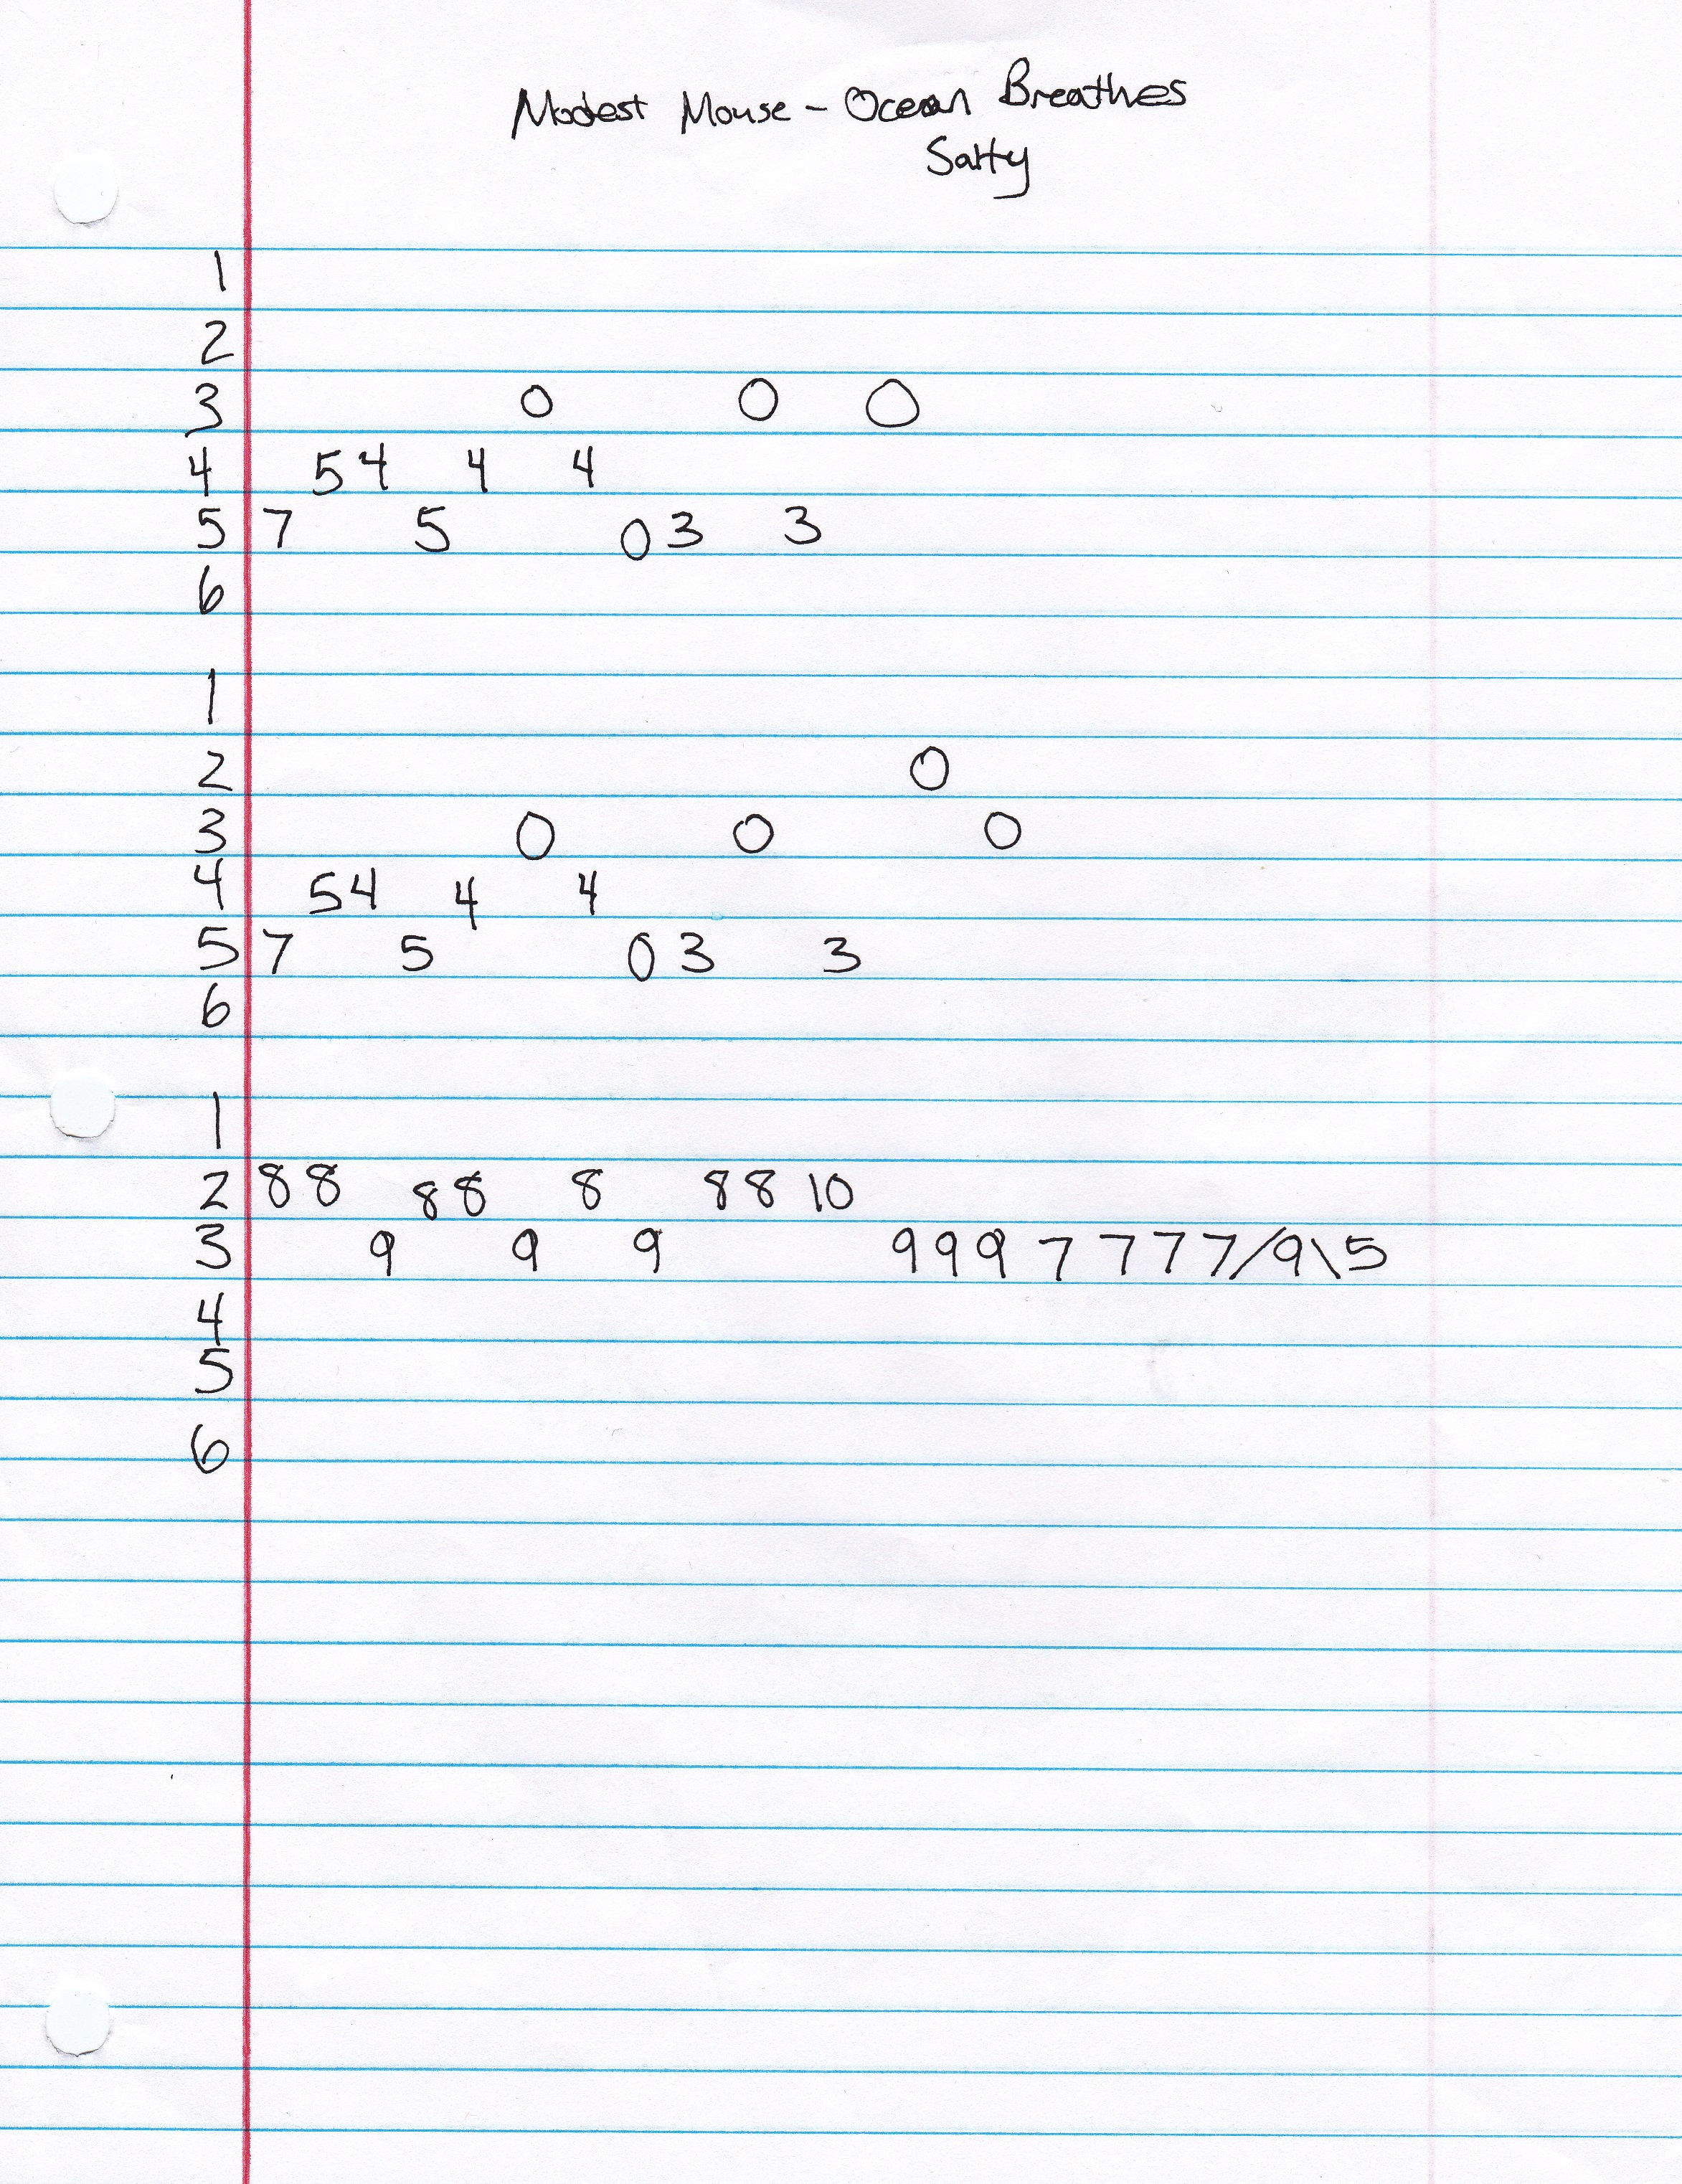 Modest Mouse - Ocean Breathes
Salty
1
2
3 0 0 0
4 5 4 4 4
5 7 5 0 3 3
6
1
2 0
3 0 0 0
4 5 4 4 4
5 7 5 0 3 3
6
1
2 8 8 8 8 8 8 8 10
3 9 9 9 9 9 9 7 7 7 7/9\5
4
5
6